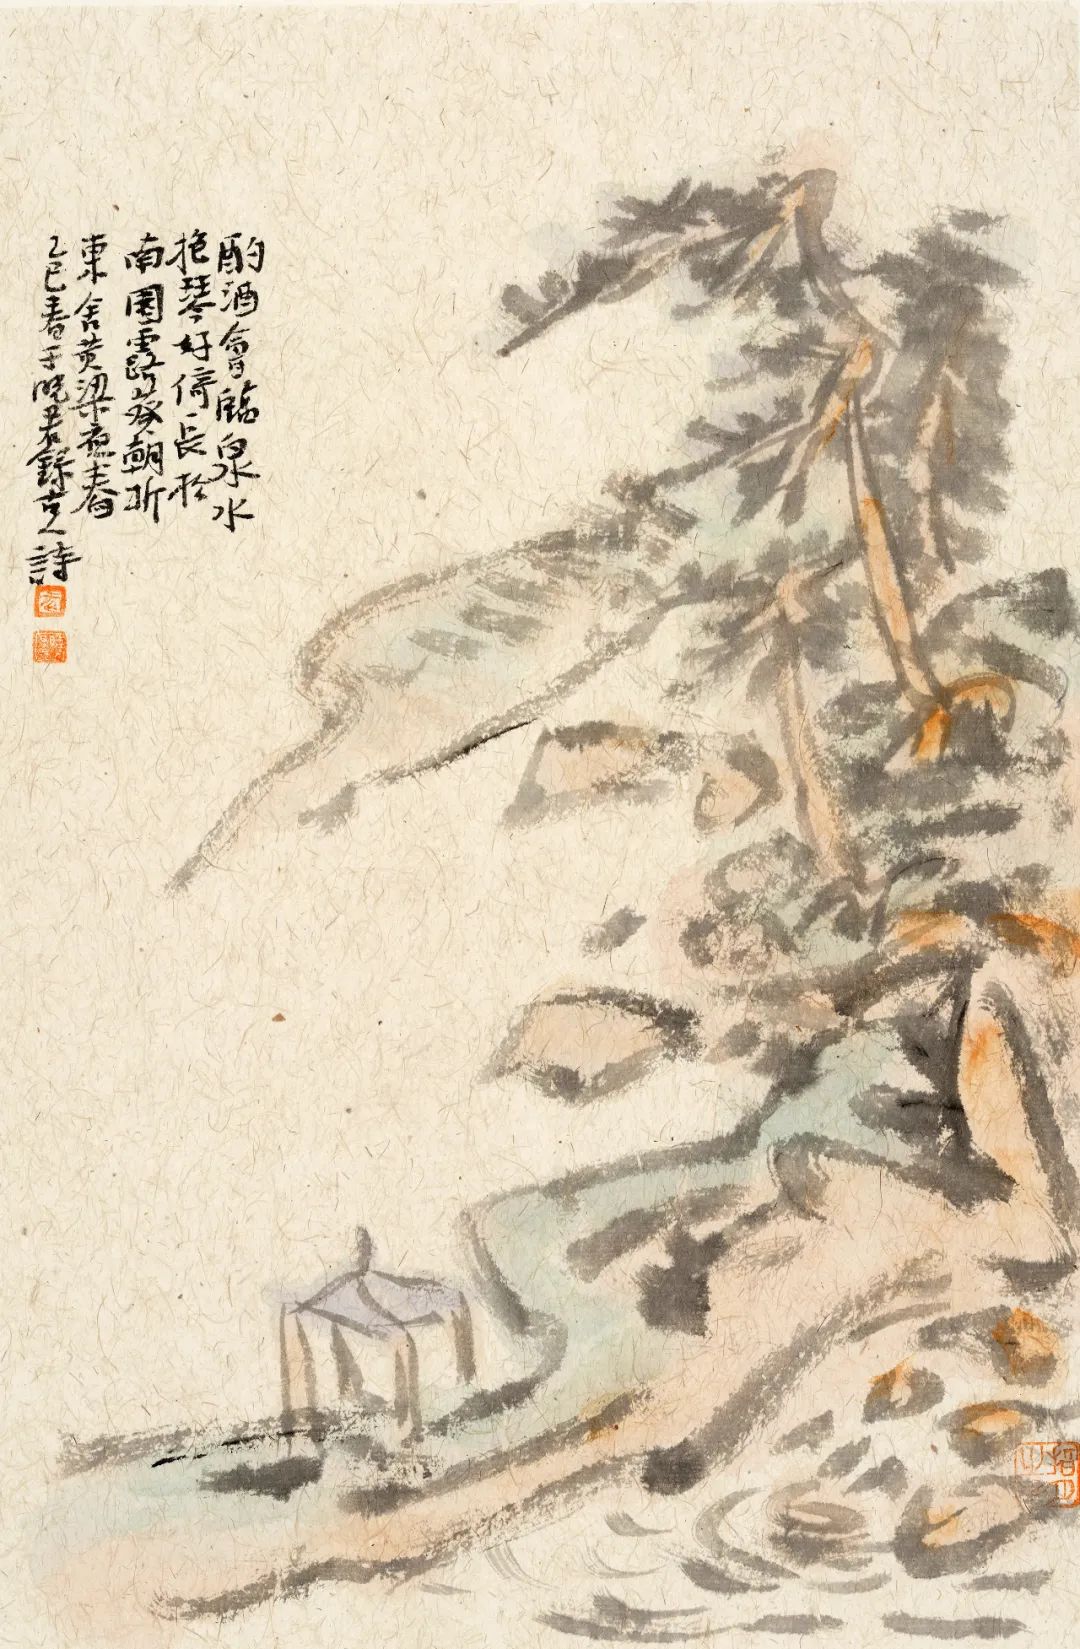 酌酒會臨泉水
抱琴好倚長松
南園露葵朝折
東舍黄粱夜舂
乙巳春于晓君錄古人詩